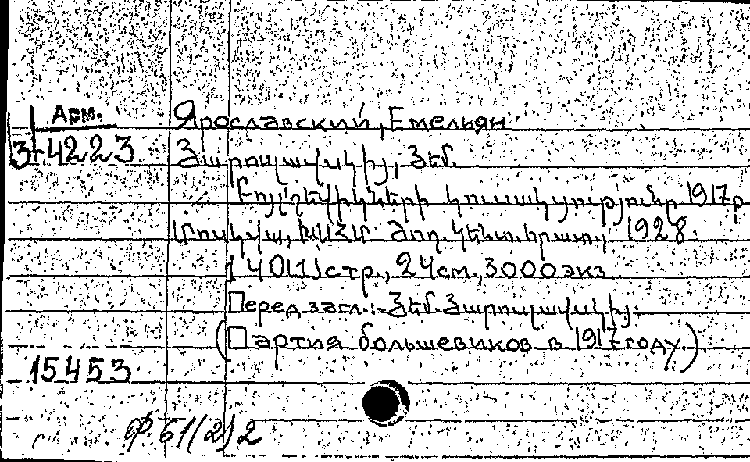 Арм.
Ярославский, Емельян
3-4223 Յարոսլավսկիյ, Յեմ.
Բոլշեվիկների կուսակցությունը 1917 թ.
Մոսկվա, ԽՍՀՄ Ժող. Կենտ. հրատ., 1928.
[401] стр., 24 см., 3000 экз
Перед загл.: Յեմ. Յարոսլավսկիյ.
(Партия большевиков в 1917 году)
15453
Ф. 61(2)2